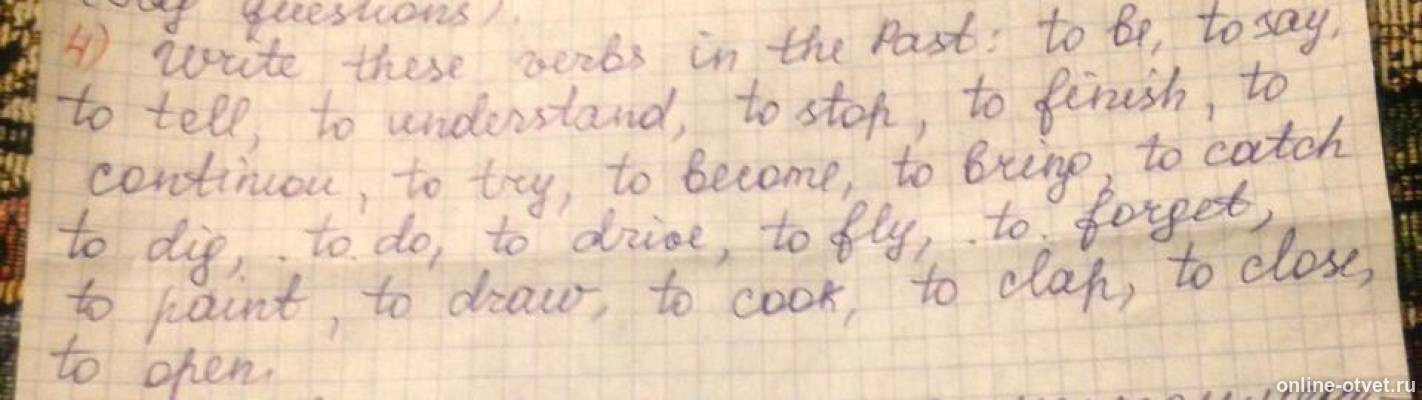 (Say questions).
4) Write these verbs in the Past: to be, to say,
to tell, to understand, to stop, to finish, to
continiou, to try, to become, to bring, to catch
to dig, to do, to drive, to fly, to forget,
to paint, to draw, to cook, to clap, to close,
to open.
online-otvet.ru